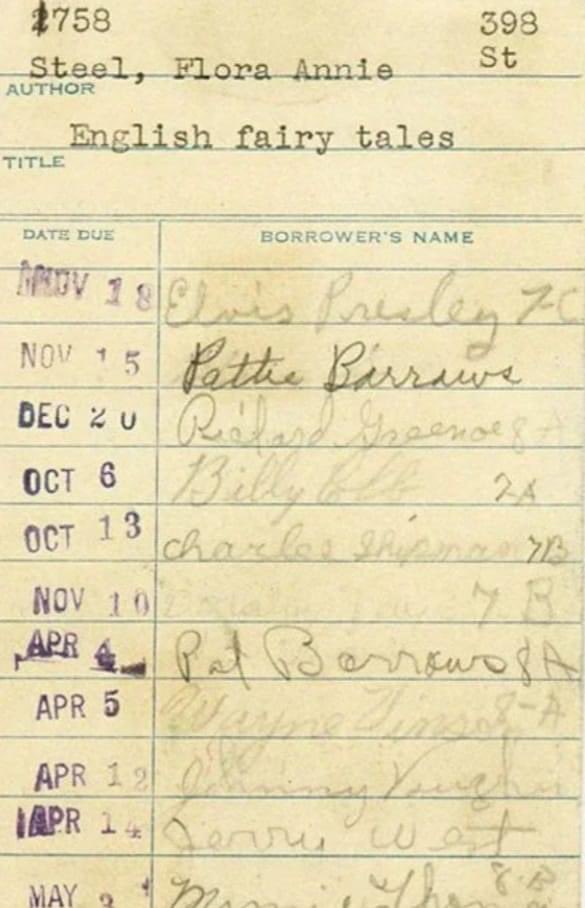 2758 398
St
Steel, Flora Annie
AUTHOR
English fairy tales
TITLE
DATE DUE BORROWER'S NAME
NOV 18 Elvis Presley 7-C
NOV 15 Pattie Barrows
DEC 20 Richard 8-A
OCT 6 Billy 7A
OCT 13 Charles Shipman 7B
NOV 10 7 B
APR 4 Pat Barrows 8A
APR 5 Wayne 8-A
APR 12 Johnny Vaughn
APR 14 Jerry West
MAY 3 8-B